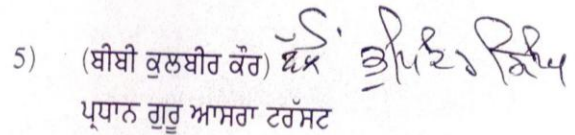 5) (ਬੀਬੀ ਕੁਲਬੀਰ ਕੌਰ) ਵੱਲੋਂ
ਪ੍ਰਧਾਨ ਗੁਰੂ ਆਸਰਾ ਟਰੱਸਟ